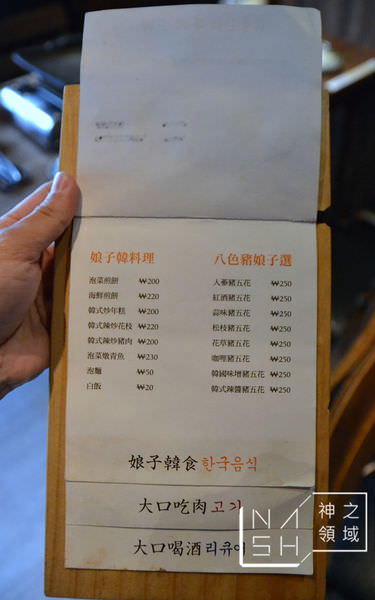 娘子韓料理
泡菜煎餅 ₩200
海鮮煎餅 ₩220
韓式炒年糕 ₩200
韓式辣炒花枝 ₩220
韓式辣炒豬肉 ₩200
泡菜燉青魚 ₩230
泡麵 ₩50
白飯 ₩20
八色豬娘子選
人蔘豬五花 ₩250
紅酒豬五花 ₩250
蒜味豬五花 ₩250
松枝豬五花 ₩250
花草豬五花 ₩250
咖哩豬五花 ₩250
韓國味增豬五花 ₩250
韓式辣醬豬五花 ₩250
娘子韓食 한국음식
大口吃肉 고기
大口喝酒 리큐어
NASH
神之領域